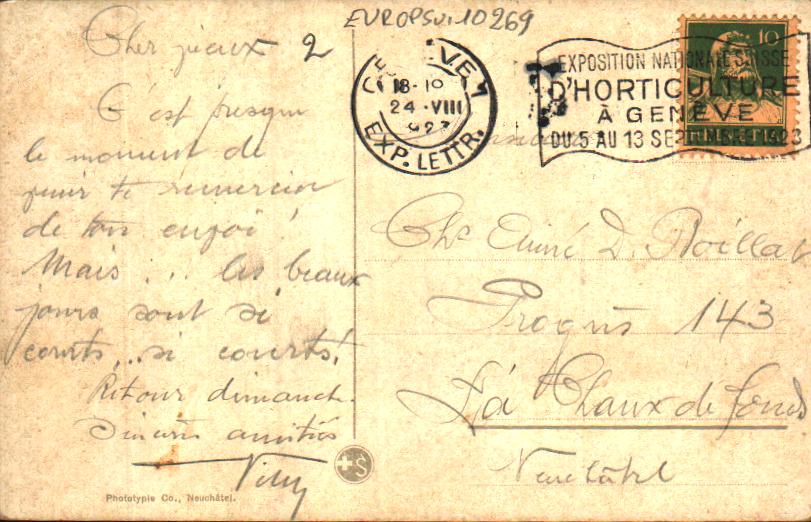 EUROPSUI10269
Cher vieux 2
C'est presque
le moment de
venir te remercier
de ton envoi !
Mais ... les beaux
jours sont si
courts... si courts!
Retour dimanche.
Sincères amitiés
Phototypie Co., Neuchâtel.
GENÈVE 1
18-19
24·VIII
1923
EXP. LETTR.
EXPOSITION NATIONALE SUISSE
D'HORTICULTURE
À GENÈVE
DU 5 AU 13 SEPTEMBRE 1923
10
HELVETIA
Chs Aimé D. Boillat
Progrès 143
La Chaux de fonds
Neuchâtel